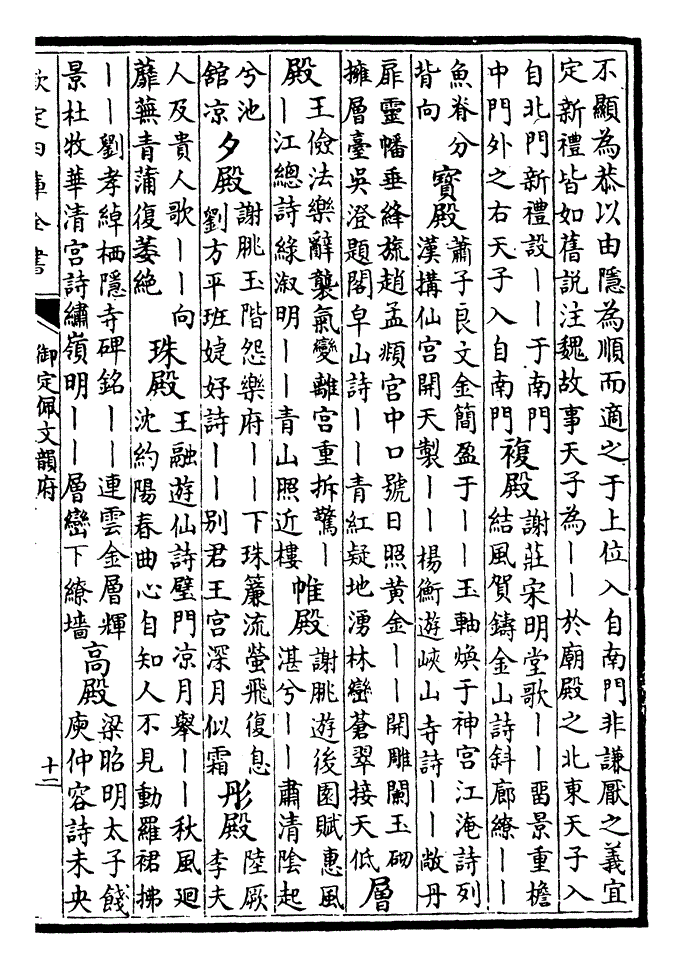 不顯為恭以由隱為順而適之于上位入自南門非謙厭之義宜
定新禮皆如舊說注魏故事天子為丨丨於廟殿之北東天子入
自北門新禮設丨丨于南門
中門外之右天子入自南門
複殿
謝莊宋明堂歌丨丨畱景重檐
結風賀鑄金山詩斜廊繚丨丨
魚脊分
背向
寶殿
蕭子良文金簡盈于丨丨玉軸煥于神宮江淹詩列
漢搆仙宮開天製丨丨楊衡遊峽山寺詩丨丨敞丹
扉靈幡垂絳旒趙孟頫宮中口號日照黃金丨丨開雕闌玉砌
擁層臺吳澄題閣皁山詩丨丨青紅疑地湧林巒蒼翠接天低
層
殿
王儉法樂辭襲氣變離宮重拆驚丨
丨江總詩綠溆明丨丨青山照近樓
帷殿
謝朓遊後園賦惠風
湛兮丨丨肅清陰起
兮池
舘凉
夕殿
謝朓玉階怨樂府丨丨下珠簾流螢飛復息
劉方平班婕妤詩丨丨别君王宮深月似霜
彤殿
陸厥
李夫
人及貴人歌丨丨向
蘼蕪青蒲復萎絶
珠殿
王融遊仙詩璧門凉月舉丨丨秋風廻
沈約陽春曲心自知人不見動羅裙拂
丨丨劉孝綽栖隱寺碑銘丨丨連雲金層輝
景杜牧華清宮詩繡嶺明丨丨層巒下繚墻
高殿
梁昭明太子餞
庾仲容詩未央
欽定四庫全書
御定佩文韻府
十二